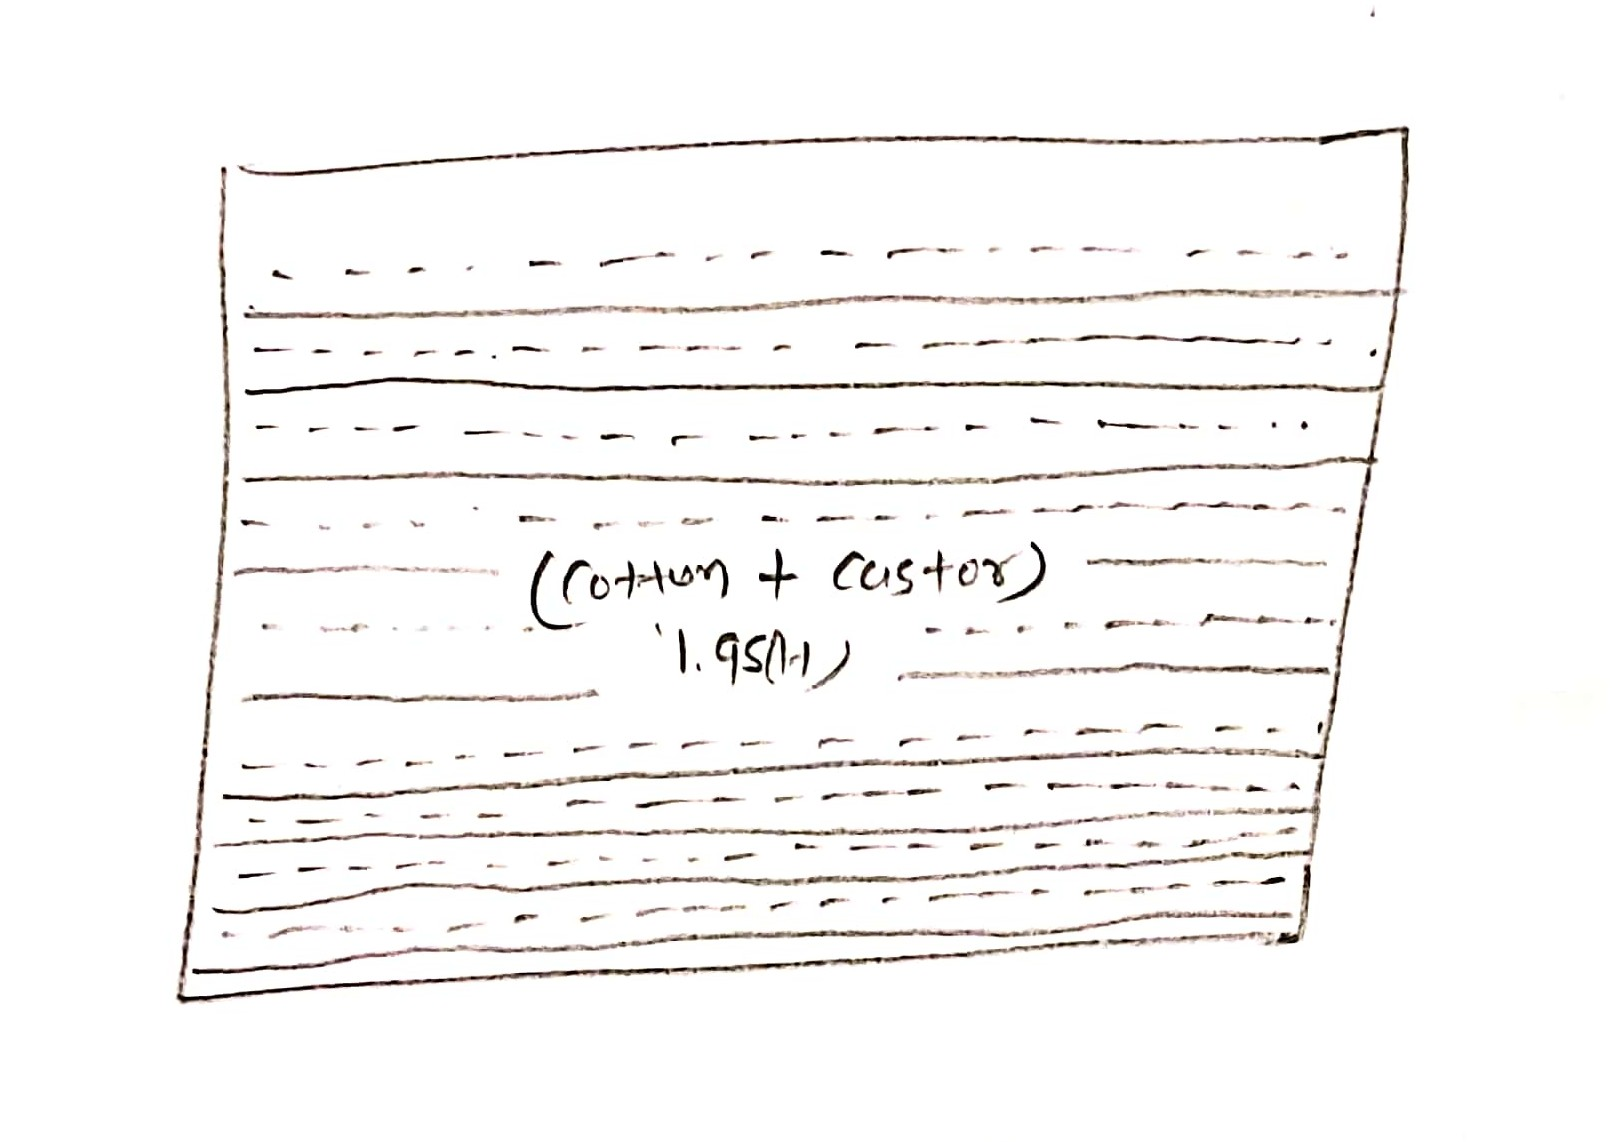 (Cotton + Castor)
1.95(H)